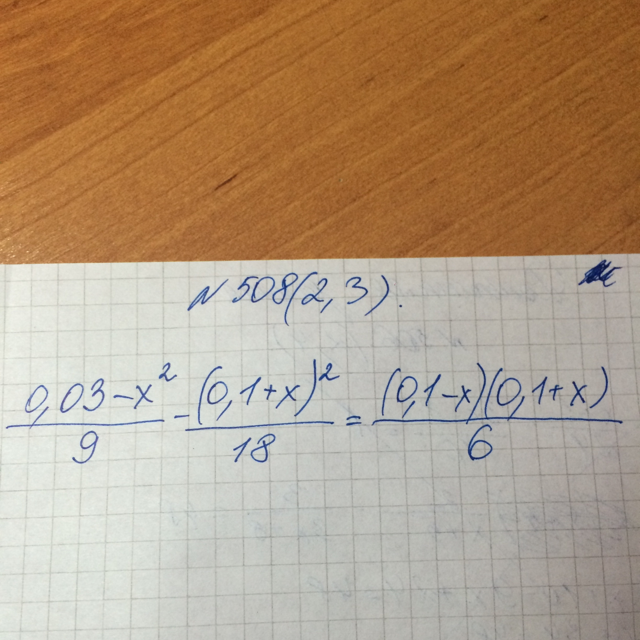 N 508(2,3).
(0,03-x²)/9 - (0,1+x)²/18 = (0,1-x)(0,1+x)/6